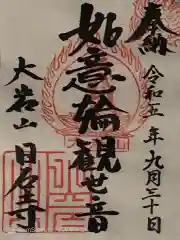 奉納
令和五年九月三十日
如意輪観世音
大岩山
日石寺